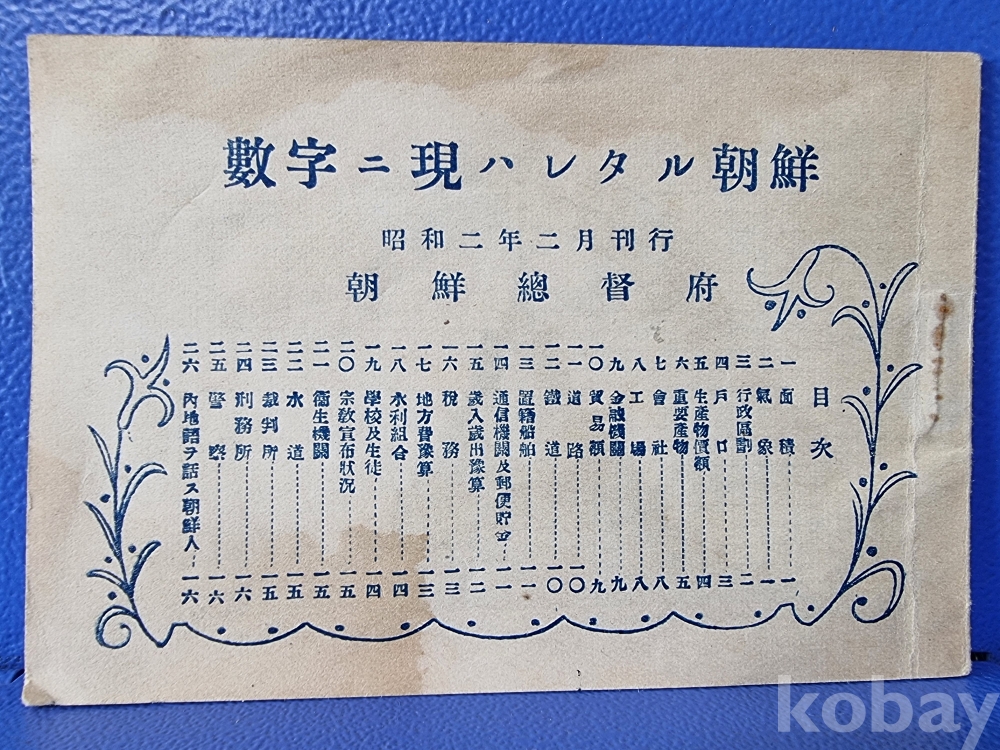 數字ニ現ハレタル朝鮮
昭和二年二月刊行
朝鮮總督府
目次
一 面積 一
二 氣象 一
三 行政區劃 二
四 戶口 三
五 生產物價額 四
六 重要產物 五
七 會社 八
八 工場 八
九 金融機關 九
一〇 貿易額 九
一一 道路 一〇
一二 鐵道 一〇
一三 置籍船舶 一一
一四 通信機關及郵便貯金 一一
一五 歲入歲出豫算 一二
一六 稅務 一三
一七 地方費豫算 一三
一八 水利組合 一四
一九 學校及生徒 一四
二〇 宗敎宣布狀況 一五
二一 衞生機關 一五
二二 水道 一五
二三 裁判所 一五
二四 刑務所 一六
二五 警察 一六
二六 內地語ヲ話ス朝鮮人 一六
kobay